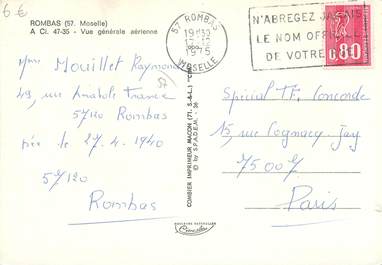 6 €
ROMBAS (57. Moselle)
A Ci. 47-35 - Vue générale aérienne
57 ROMBAS
1975
MOSELLE
N'ABREGEZ JAMAIS
LE NOM OFFICIEL
DE VOTRE
0,80
Mme Mouillet Raymonde
49, rue Anatole France
57120 Rombas
née le 27.4.1940
57120
Rombas
57
COMBIER IMPRIMEUR MACON (71. S.-&-L.) "CIM"
© by S.P.A.D.E.M.
Spécial TF. Concorde
15, rue Cognacq-Jay
75007
Paris